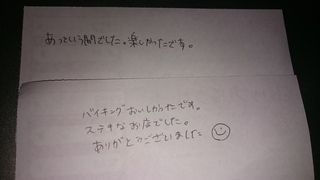 あっという間でした。楽しかったです。
バイキングおいしかったです。
ステキなお店でした。
ありがとうございました